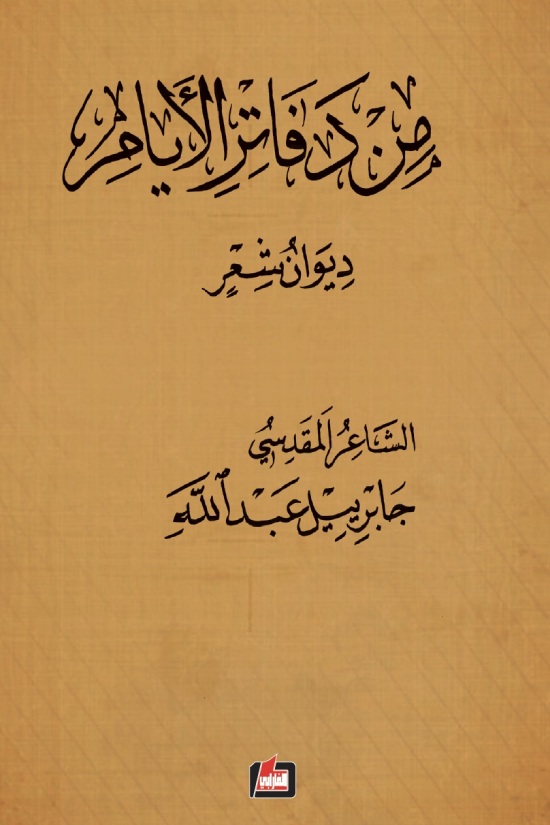 مِنْ دَفَاتِرِ الأَيَامِ
دِيوَانُ شِعْرٍ
الشَاعِرُ المَقْدِسِيُ
جَابْرِييِل عَبْد ٱللَّهَِ
الفارابي